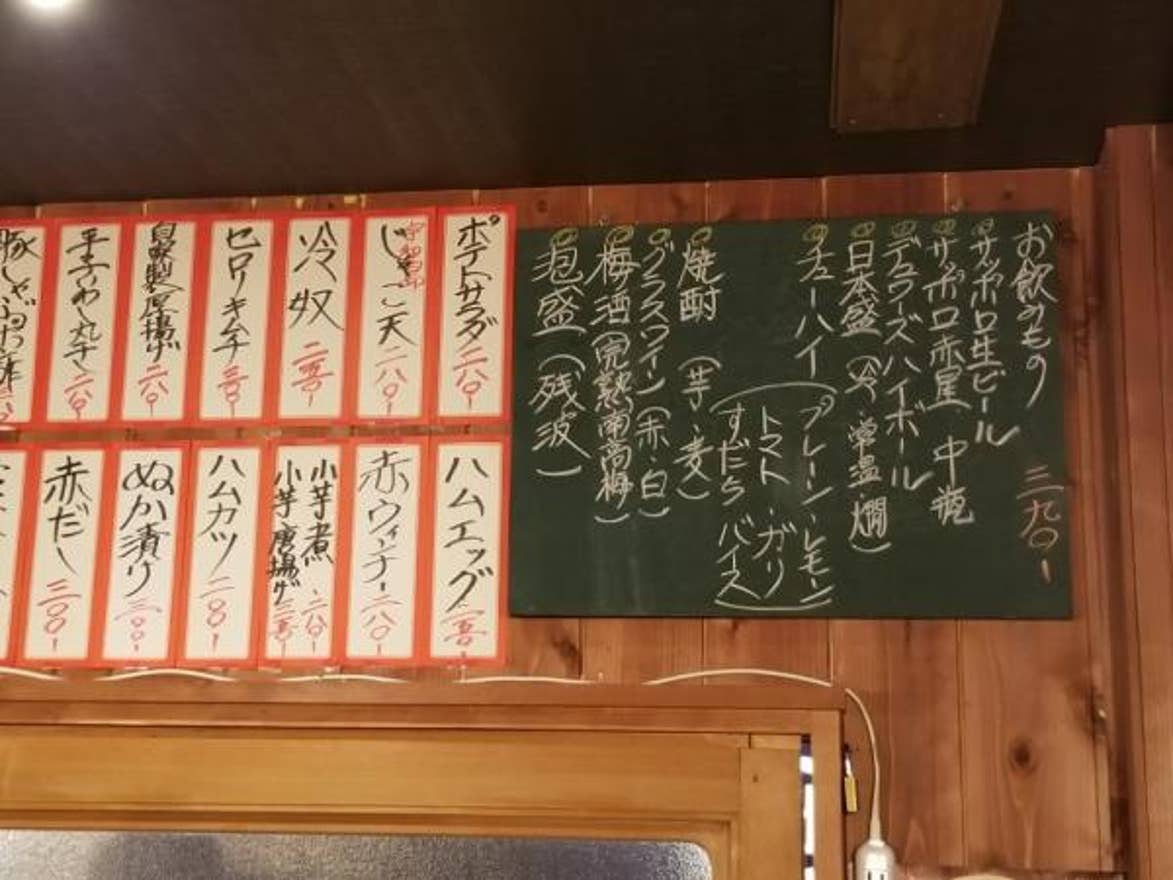 お飲みもの 三九〇ー
サッポロ生ビール
サッポロ赤星 中瓶
デュワーズハイボール
日本盛(冷・常温・燗)
チューハイ
プレーン・レモン
トマト・ガリ
すだち バイス
焼酎(芋・麦)
グラスワイン(赤・白)
梅酒(完熟南高梅)
泡盛(残波)
ポテトサラダ 二八〇ー
宇和島
じゃこ天 二八〇ー
冷奴 二五〇ー
セロリキムチ 三〇〇ー
自家製厚揚げ 二八〇ー
平子いわし丸干 二八〇ー
豚しゃぶ
ハムエッグ 三五〇ー
赤ウインナー 二八〇ー
小芋煮 二八〇ー
小芋唐揚げ 三五〇ー
ハムカツ 二八〇ー
ぬか漬け 三〇〇ー
赤だし 三〇〇ー